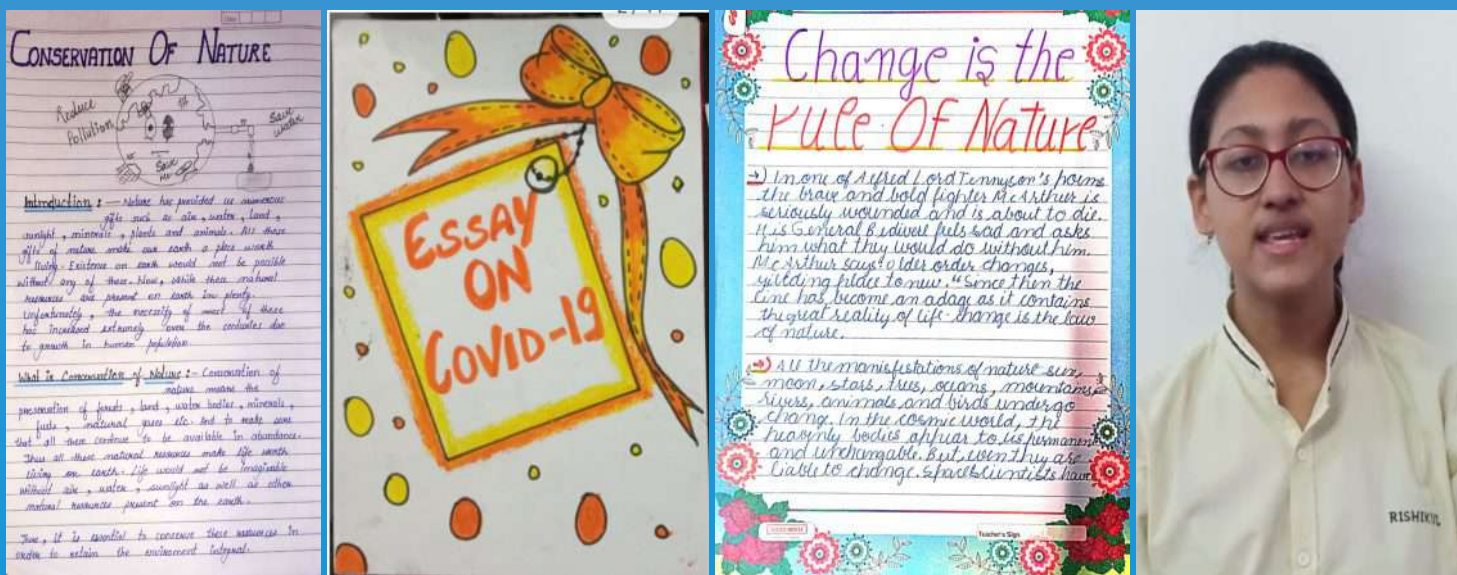 CONSERVATION OF NATURE
Reduce
Pollution
Save
water
Save
me
Introduction :— Nature has provided us numerous
gifts such as air, water, land,
sunlight, minerals, plants and animals. All these
gifts of nature make our earth a place worth
living. Existence on earth would not be possible
without any of these. Now, while these natural
resources are present on earth in plenty.
Unfortunately, the necessity of most of these
has increased extremely over the centuries due
to growth in human population
What is Conservation of Nature :- Conservation of
nature means the
preservation of forests, land, water bodies, minerals,
fuels, natural gases etc. And to make sure
that all these continue to be available in abundance.
Thus all these natural resources make life worth
living on earth. Life would not be imaginable
without air, water, sunlight as well as other
natural resources present on the earth.
Thus, it is essential to conserve these resources in
order to retain the environment integral.
ESSAY
ON
COVID-19
Change is the
rule Of Nature
→) In one of Alfred Lord Tennyson's poems
the brave and bold fighter Mc Arthur is
seriously wounded and is about to die.
His General Bediverl fels sad and asks
him what they would do without him.
Mc Arthur says "older order changes,
yielding place to new." Since then the
line has become an adage as it contains
the great reality of life- change is the law
of nature.
→) All the manifestations of nature sun,
moon, stars, trees, oceans, mountains,
rivers, animals and birds undergo
change. In the cosmic world, the
heavenly bodies appear to us permanent
and unchangable. But even they are
liable to change. Space Scientists have
Teacher's Sign
RISHIKUL